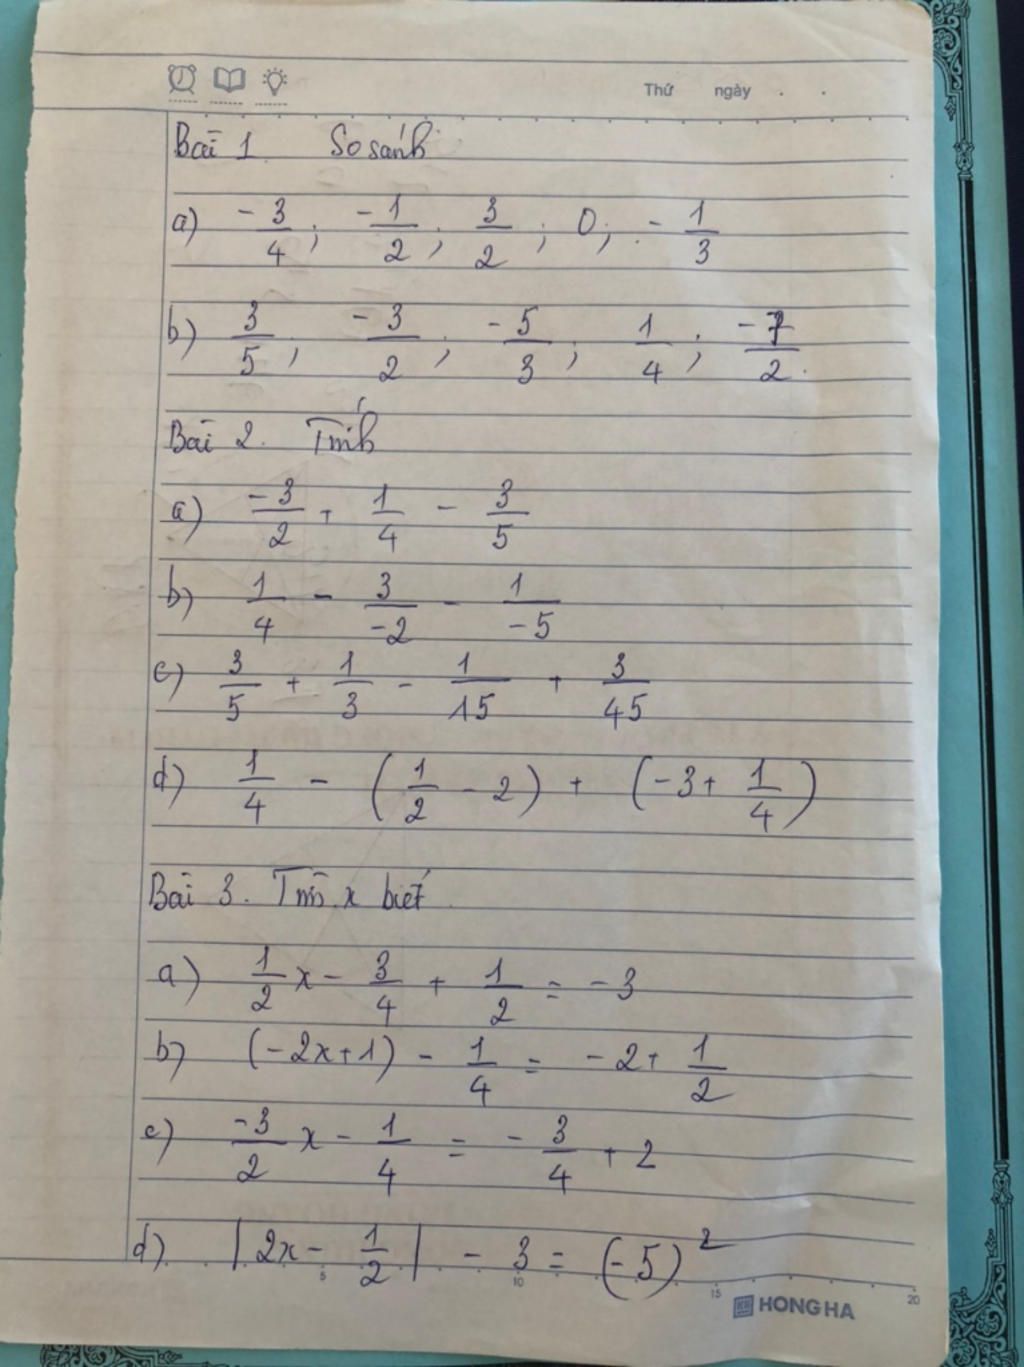 Thứ ngày . .
Bài 1 So sánh
a) -3/4 ; -1/2 ; 3/2 ; 0 ; -1/3
b) 3/5 ; -3/2 ; -5/3 ; 1/4 ; -7/2
Bài 2. Tính
a) -3/2 + 1/4 - 3/5
b) 1/4 - 3/-2 - 1/-5
c) 3/5 + 1/3 - 1/15 + 3/45
d) 1/4 - (1/2 - 2) + (-3 + 1/4)
Bài 3. Tìm x biết
a) 1/2 x - 3/4 + 1/2 = -3
b) (-2x+1) - 1/4 = -2 + 1/2
c) -3/2 x - 1/4 = -3/4 + 2
d) |2x - 1/2| - 3 = (-5)²
5 10 15 20
HONG HA